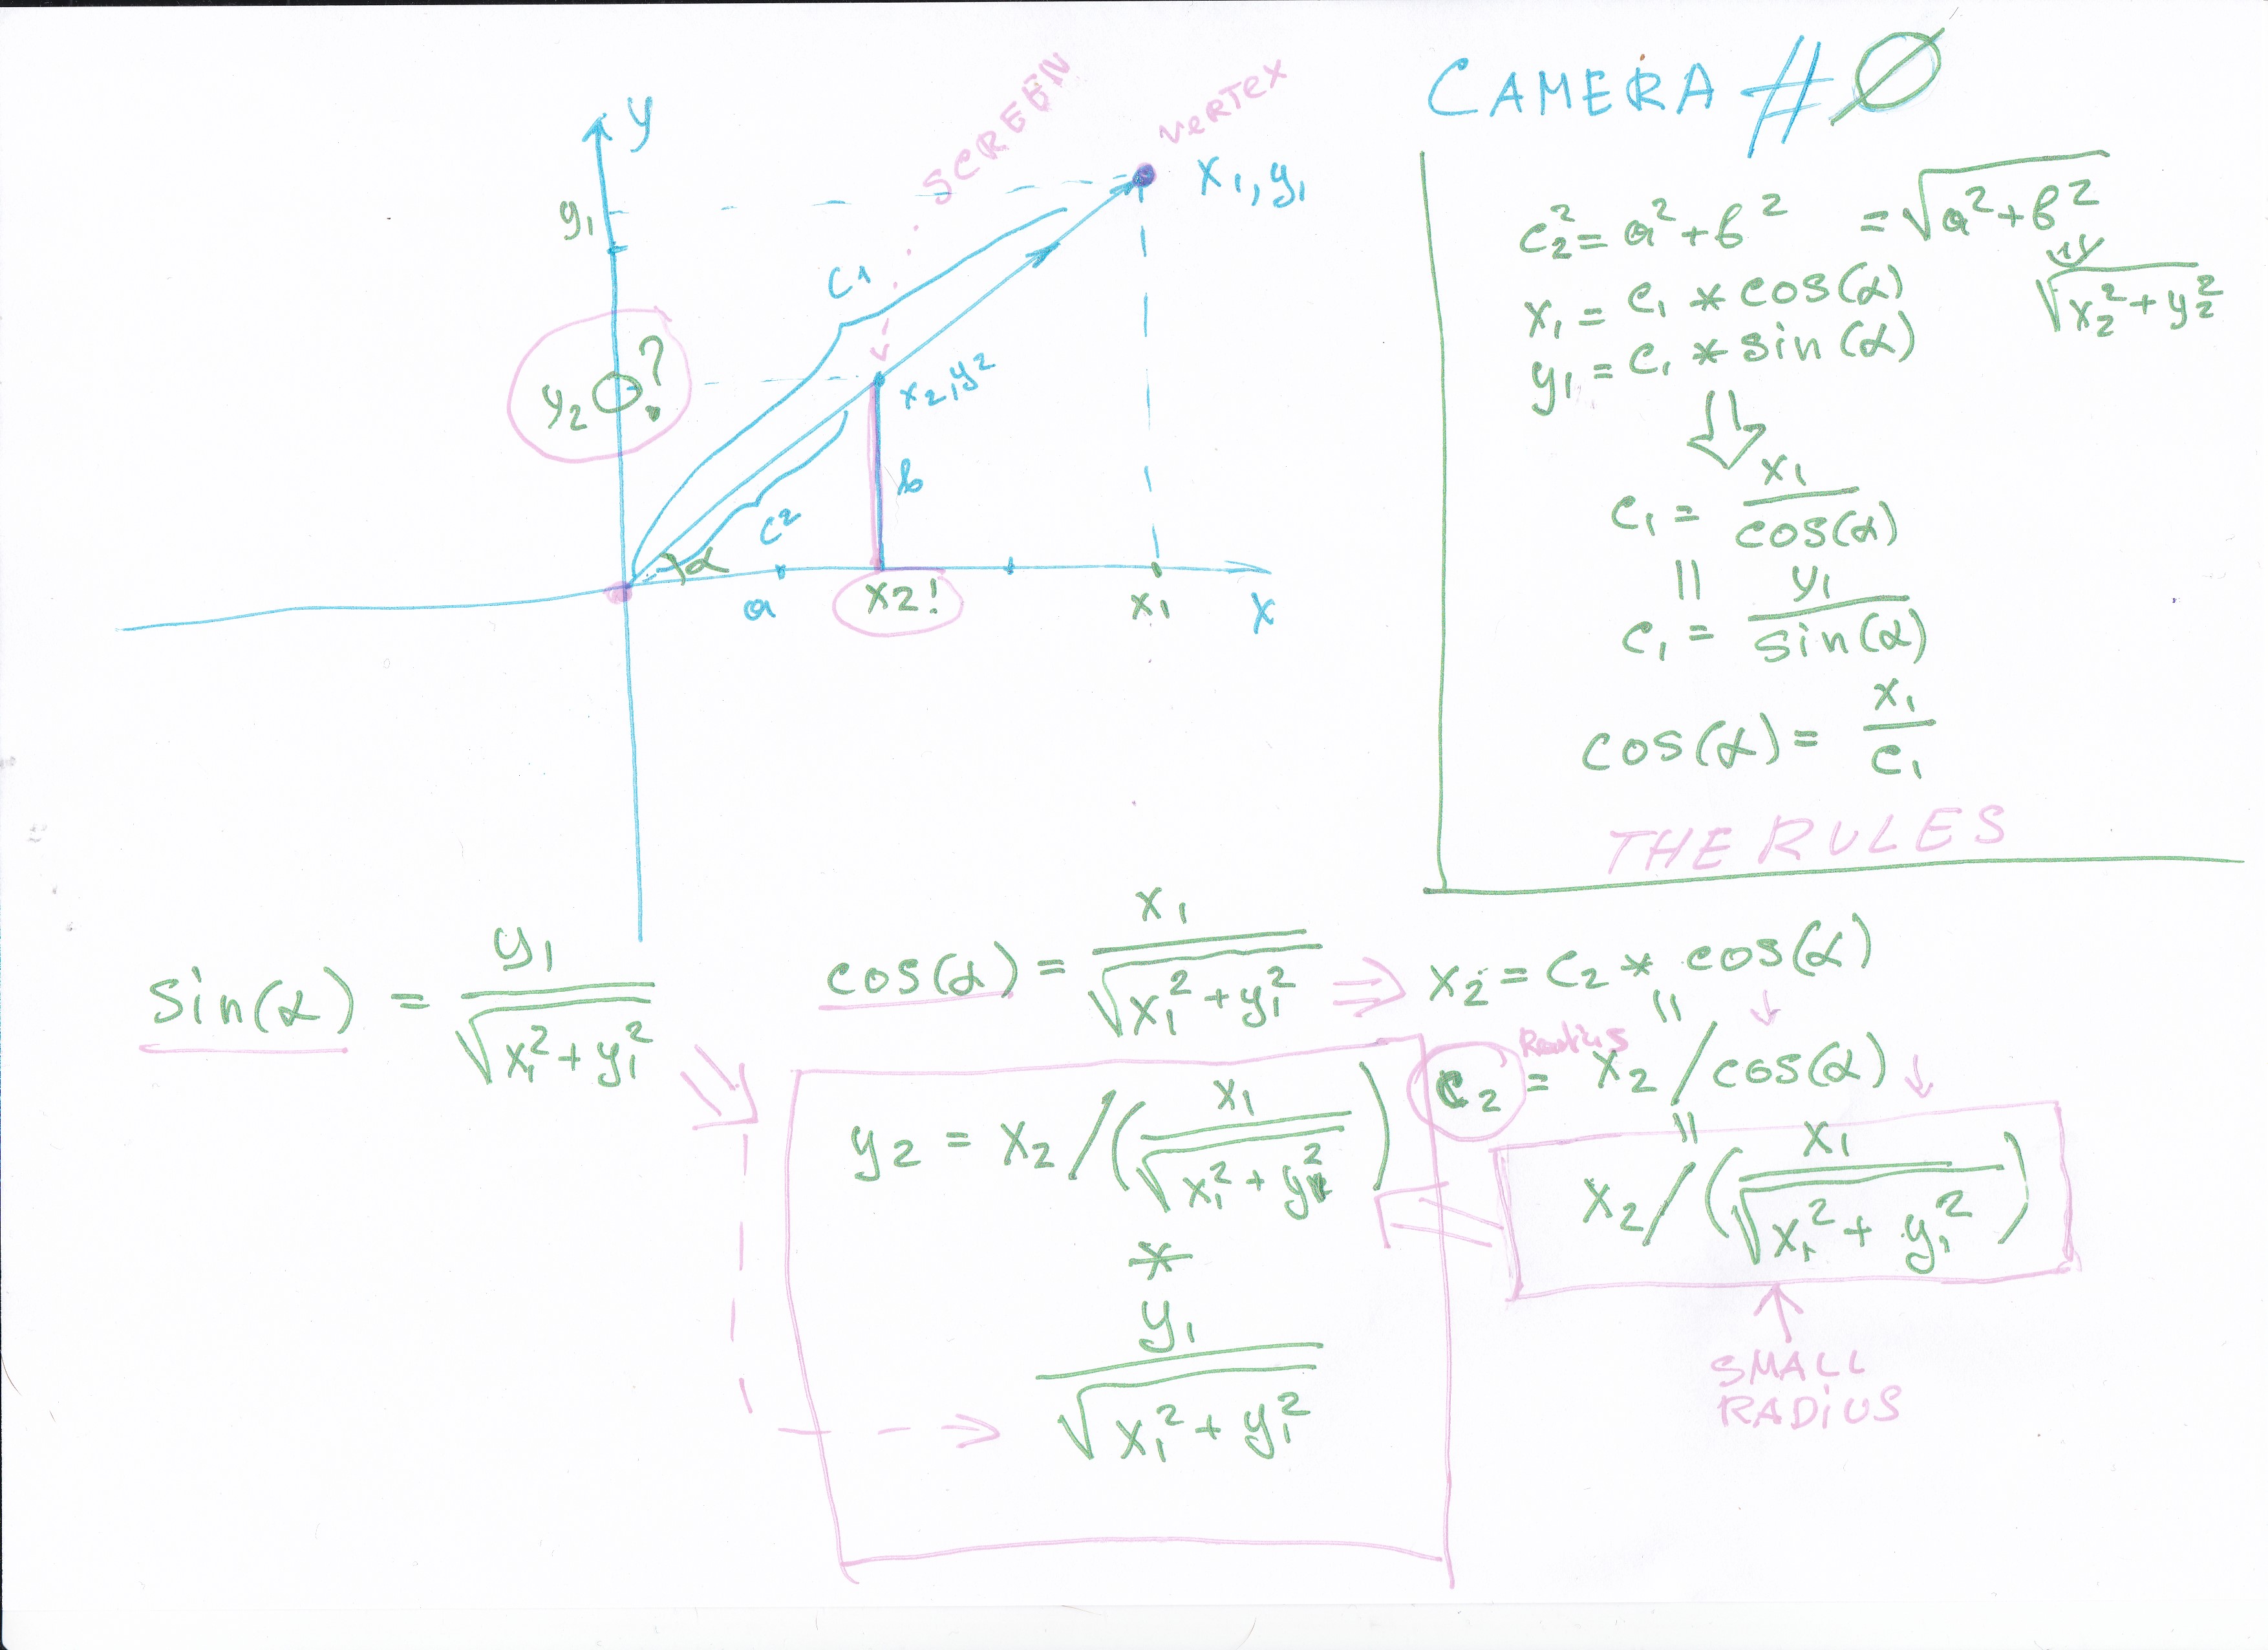 CAMERA #Ø
SCREEN
VERTEX
y
y₁
x₁, y₁
C1
y₂ ?
x₂, y²
b
c²
α
a
x2!
x₁
x
c₂² = a² + b² = √(a² + b²)
√(x₂² + y₂²)
x₁ = c₁ * cos(α)
y₁ = c₁ * sin(α)
⇓
c₁ = x₁ / cos(α)
||
c₁ = y₁ / sin(α)
cos(α) = x₁ / c₁
THE RULES
sin(α) = y₁ / √(x₁² + y₁²)
cos(α) = x₁ / √(x₁² + y₁²) ⇒ x₂ = C₂ * cos(α)
||
Radius
C₂ = x₂ / cos(α)
||
x₂ / (x₁ / √(x₁² + y₁²))
SMALL
RADIUS
y₂ = x₂ / (x₁ / √(x₁² + y₁²))
*
y₁ / √(x₁² + y₁²)